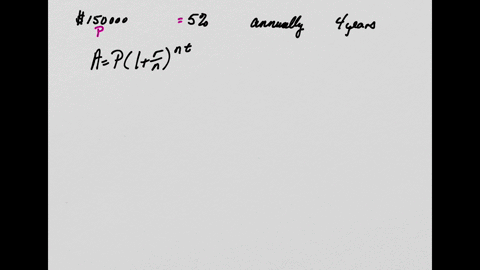 $150000 = 5% annually 4 years
P
A = P(1+r/n)^nt